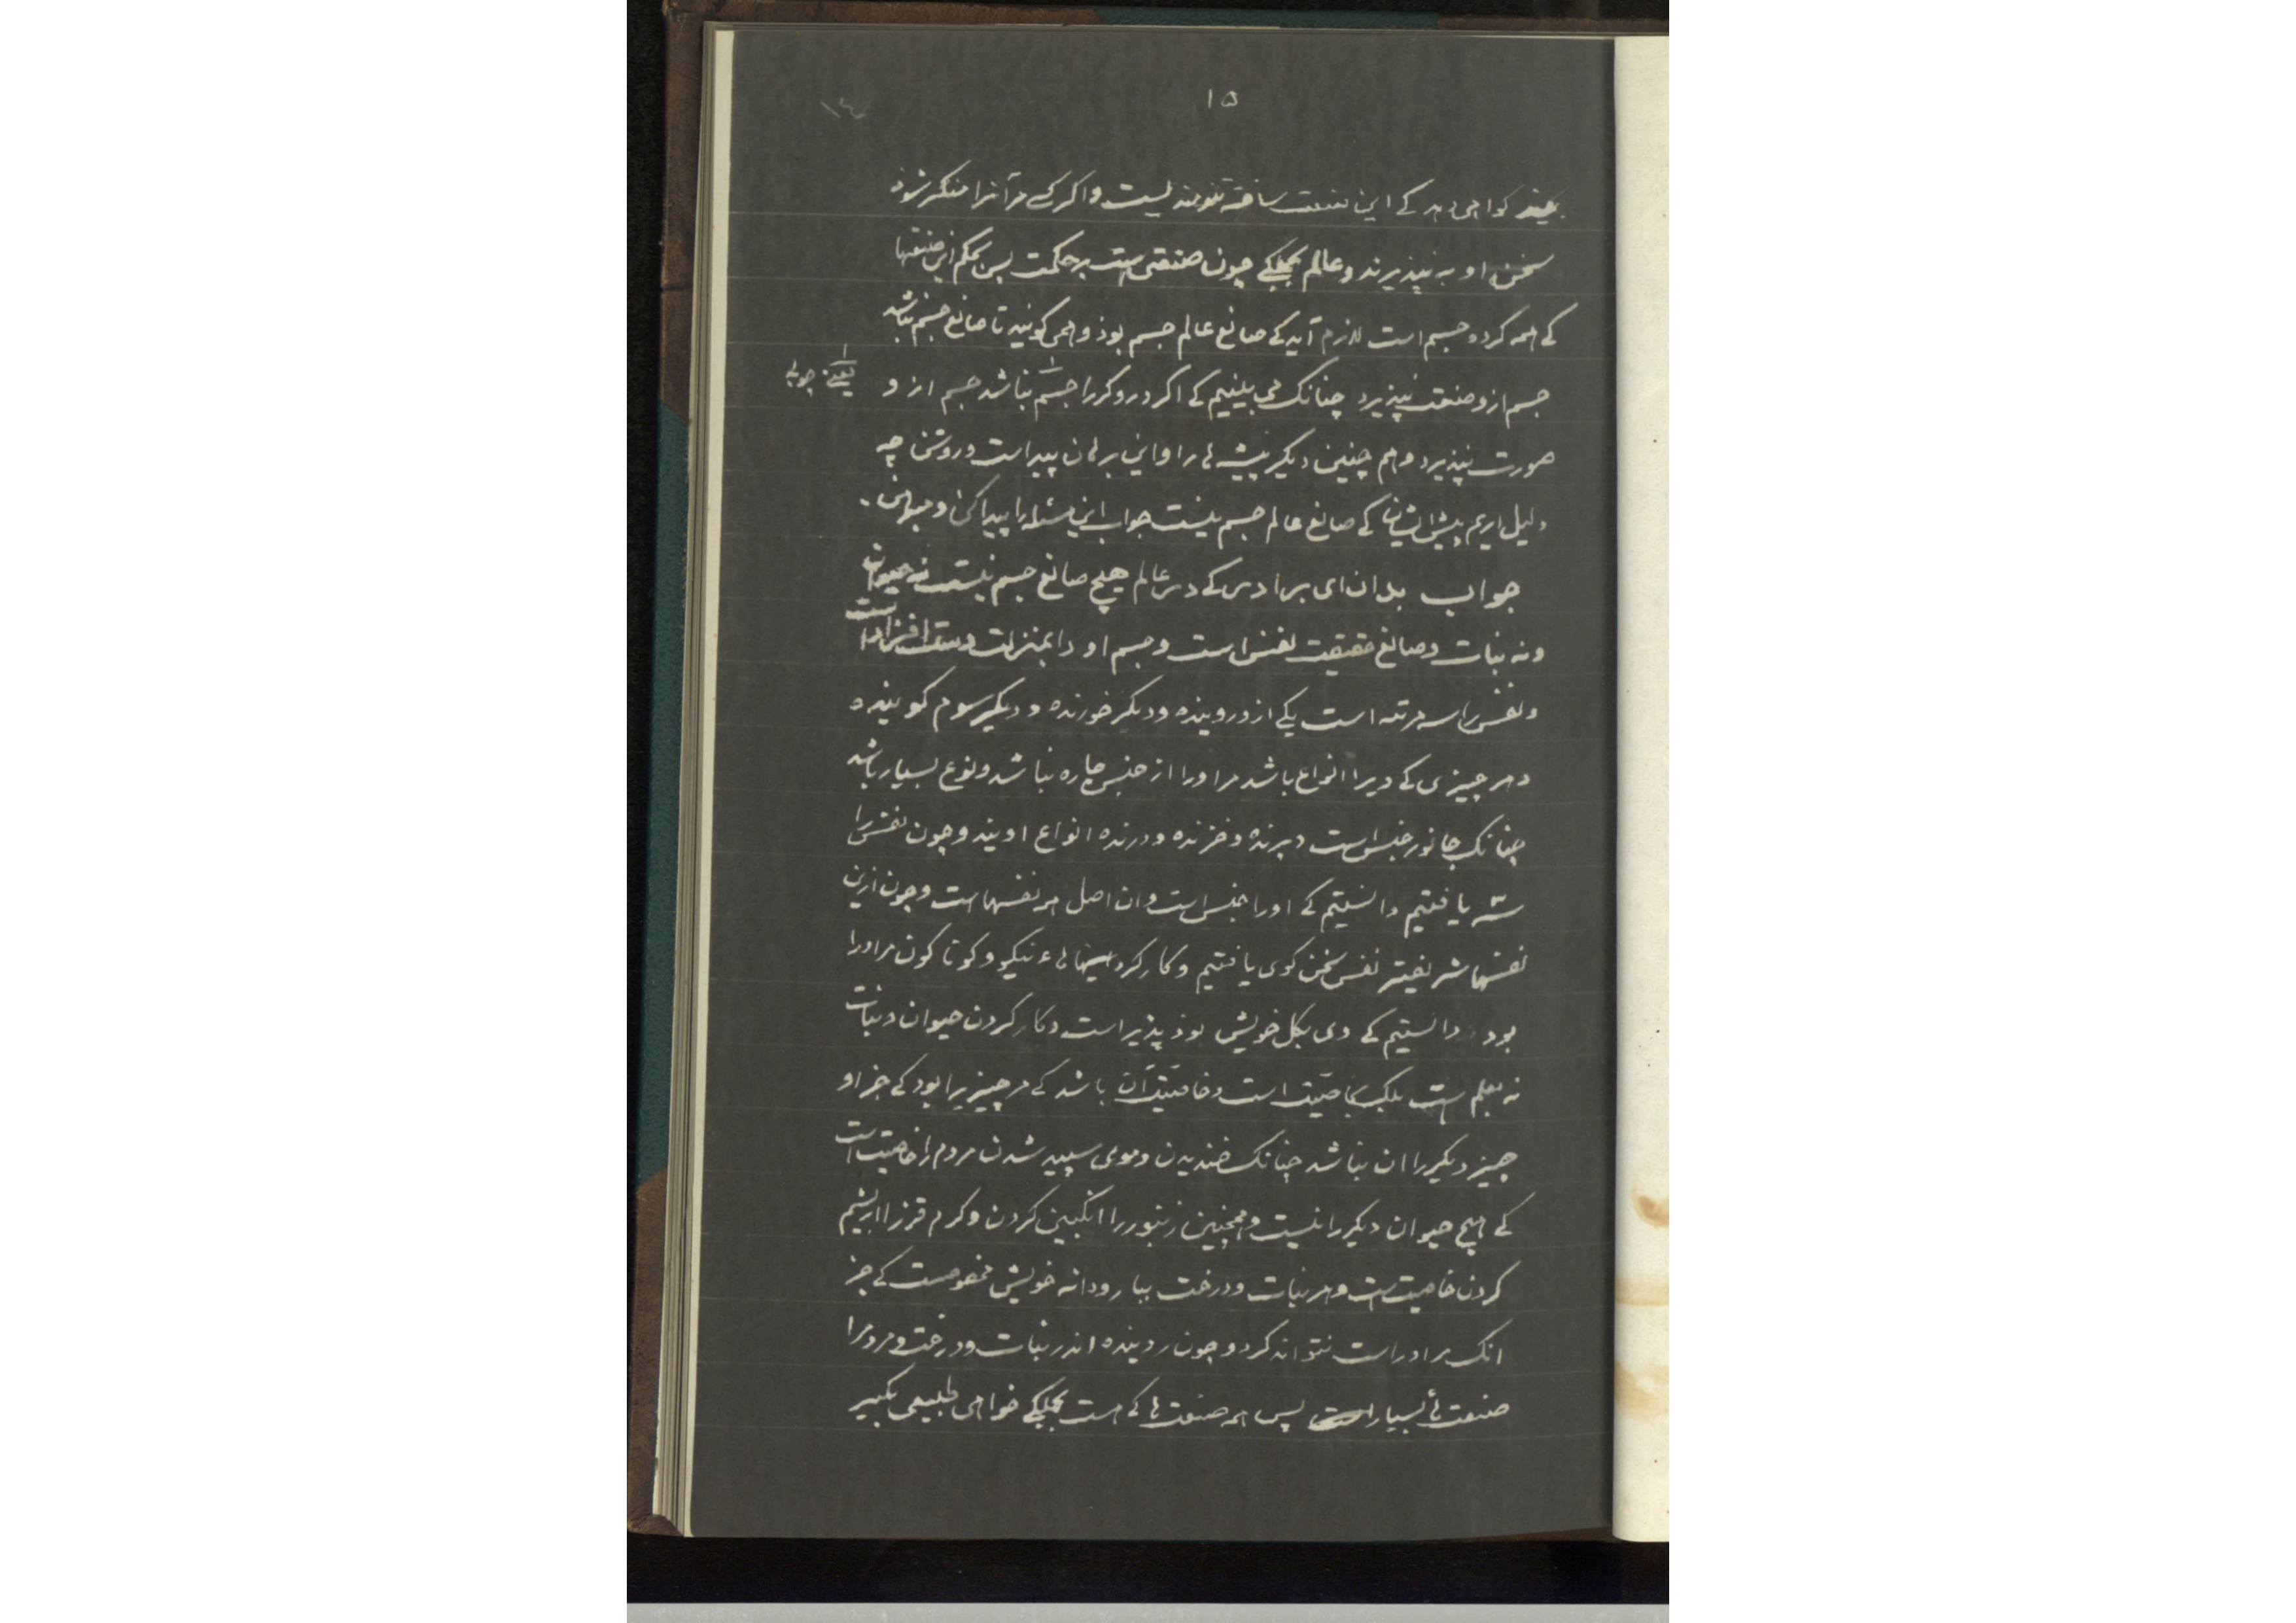 ۱۵
بیند کواهی دهد کے این صنعت ساختهٔ تنومند یست واکر کسے مر آنرا منکر شوذ
سخن او به نپذیرند و عالم بجملکے چون صنعتی است پر حکمت پس بحکم این صنعتها
کے همه کرده جسم است لازم آید کے صانع عالم جسم بوذ و همی کوئید تا صانع جسم نباشد
جسم ازو صنعت نپذیرد چنانک می بینیم کے اکر درو کر را جسم نباشد جسم از و
یعنے چوبے
صورت نپذیرد و هم چنین دیکر پیشه ها را و این برهان پیداست و روشن چه
دلیل اریم پیش ایشان کے صانع عالم جسم نیست جواب این مسئله را پیدا کن
جواب بدان ای برادر کے در عالم هیچ صانع جسم نیست نه حیوان
و نه نبات و صانع حقیقت نفس است و جسم او را بمنزلت دست افزار است
و نفس را سه مرتبه است یکے ازو روینده و دیکر خورنده و دیکر سوم کوینده
و هر چیزی کے ویرا انواع باشد مر اورا از جنس چاره نباشد و نوع بسیار باشد
چنانک جانور جنس است و پرنده و خزنده و درنده انواع اویند و چون نفس را
سه یافتیم دانستیم کے اورا جنس است و ان اصل هر نفسهاست و چون ازین
نفسها شریفتر نفس سخن کوی یافتیم و کار کرد هاء نیکو و کونا کون مر اورا
بود دانستیم کے وی بکل خویش پذیر است و کار کردن حیوان و نبات
نه بعلم است بلک بخاصیت است و خاصیت آن باشد کے مر چیزیرا بود کے جز او
چیز دیکر را ان نباشد چنانک خندیدن و موی سپید شدن مردم را خاصیت است
کے هیچ حیوان دیکر را نیست و همچنین زنبور را انکبین کردن و کرم قز را ابریشم
کردن خاصیت است و هر نبات و درخت ببار و دانه خویش مخصوصست کے جز
انک مر اوراست نتواند کرد و چون روینده اندر نبات و درخت و مردم را
صنعت هأ بسیار است پس همه صنعت ها کے هست بجملکے خواهی طبیعی بکیر